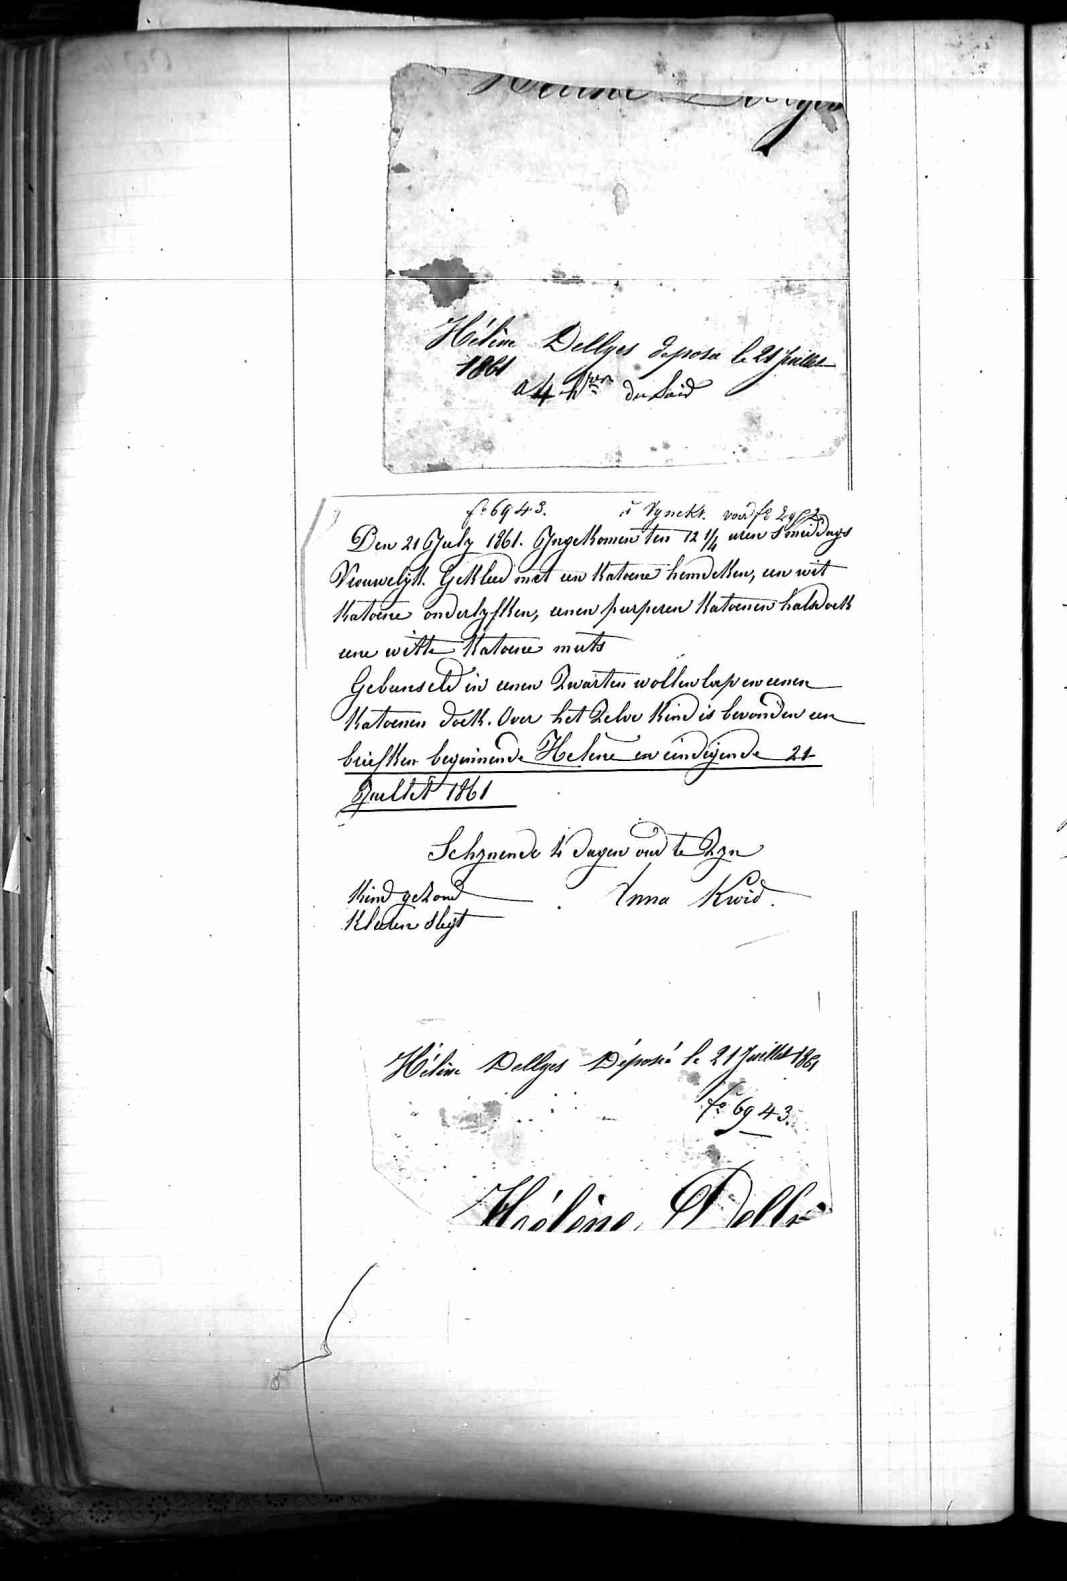 Hélène Dellyes
Hélène Dellyes deposée le 21 Juillet
1861
a 4 hres du Soid
fo 6943. Vynckt. voir fo
Den 21 July 1861. Yngekomen ten 12 1/4 uren s'middags
Vrouwelijk. Gekleed met een Katoene hemdeken, een wit
Katoene onderlyfken, eenen purperen Katoenen halsdoek
eene witte Katoene muts
Gebunseld in eenen Zwarten wollen lap en eenen
Katoenen doek. Over het Zelve Kind is bevonden een
briefken beginnende Helene en eindigende 21
Juillet 1861
Schynende 4 dagen oud te Zyn
Kind gezond Anna Kwid.
Kleeren slegt
Hélène Dellyes Déposée le 21 Juillet 1861
fo 6943.
Hélène Delly